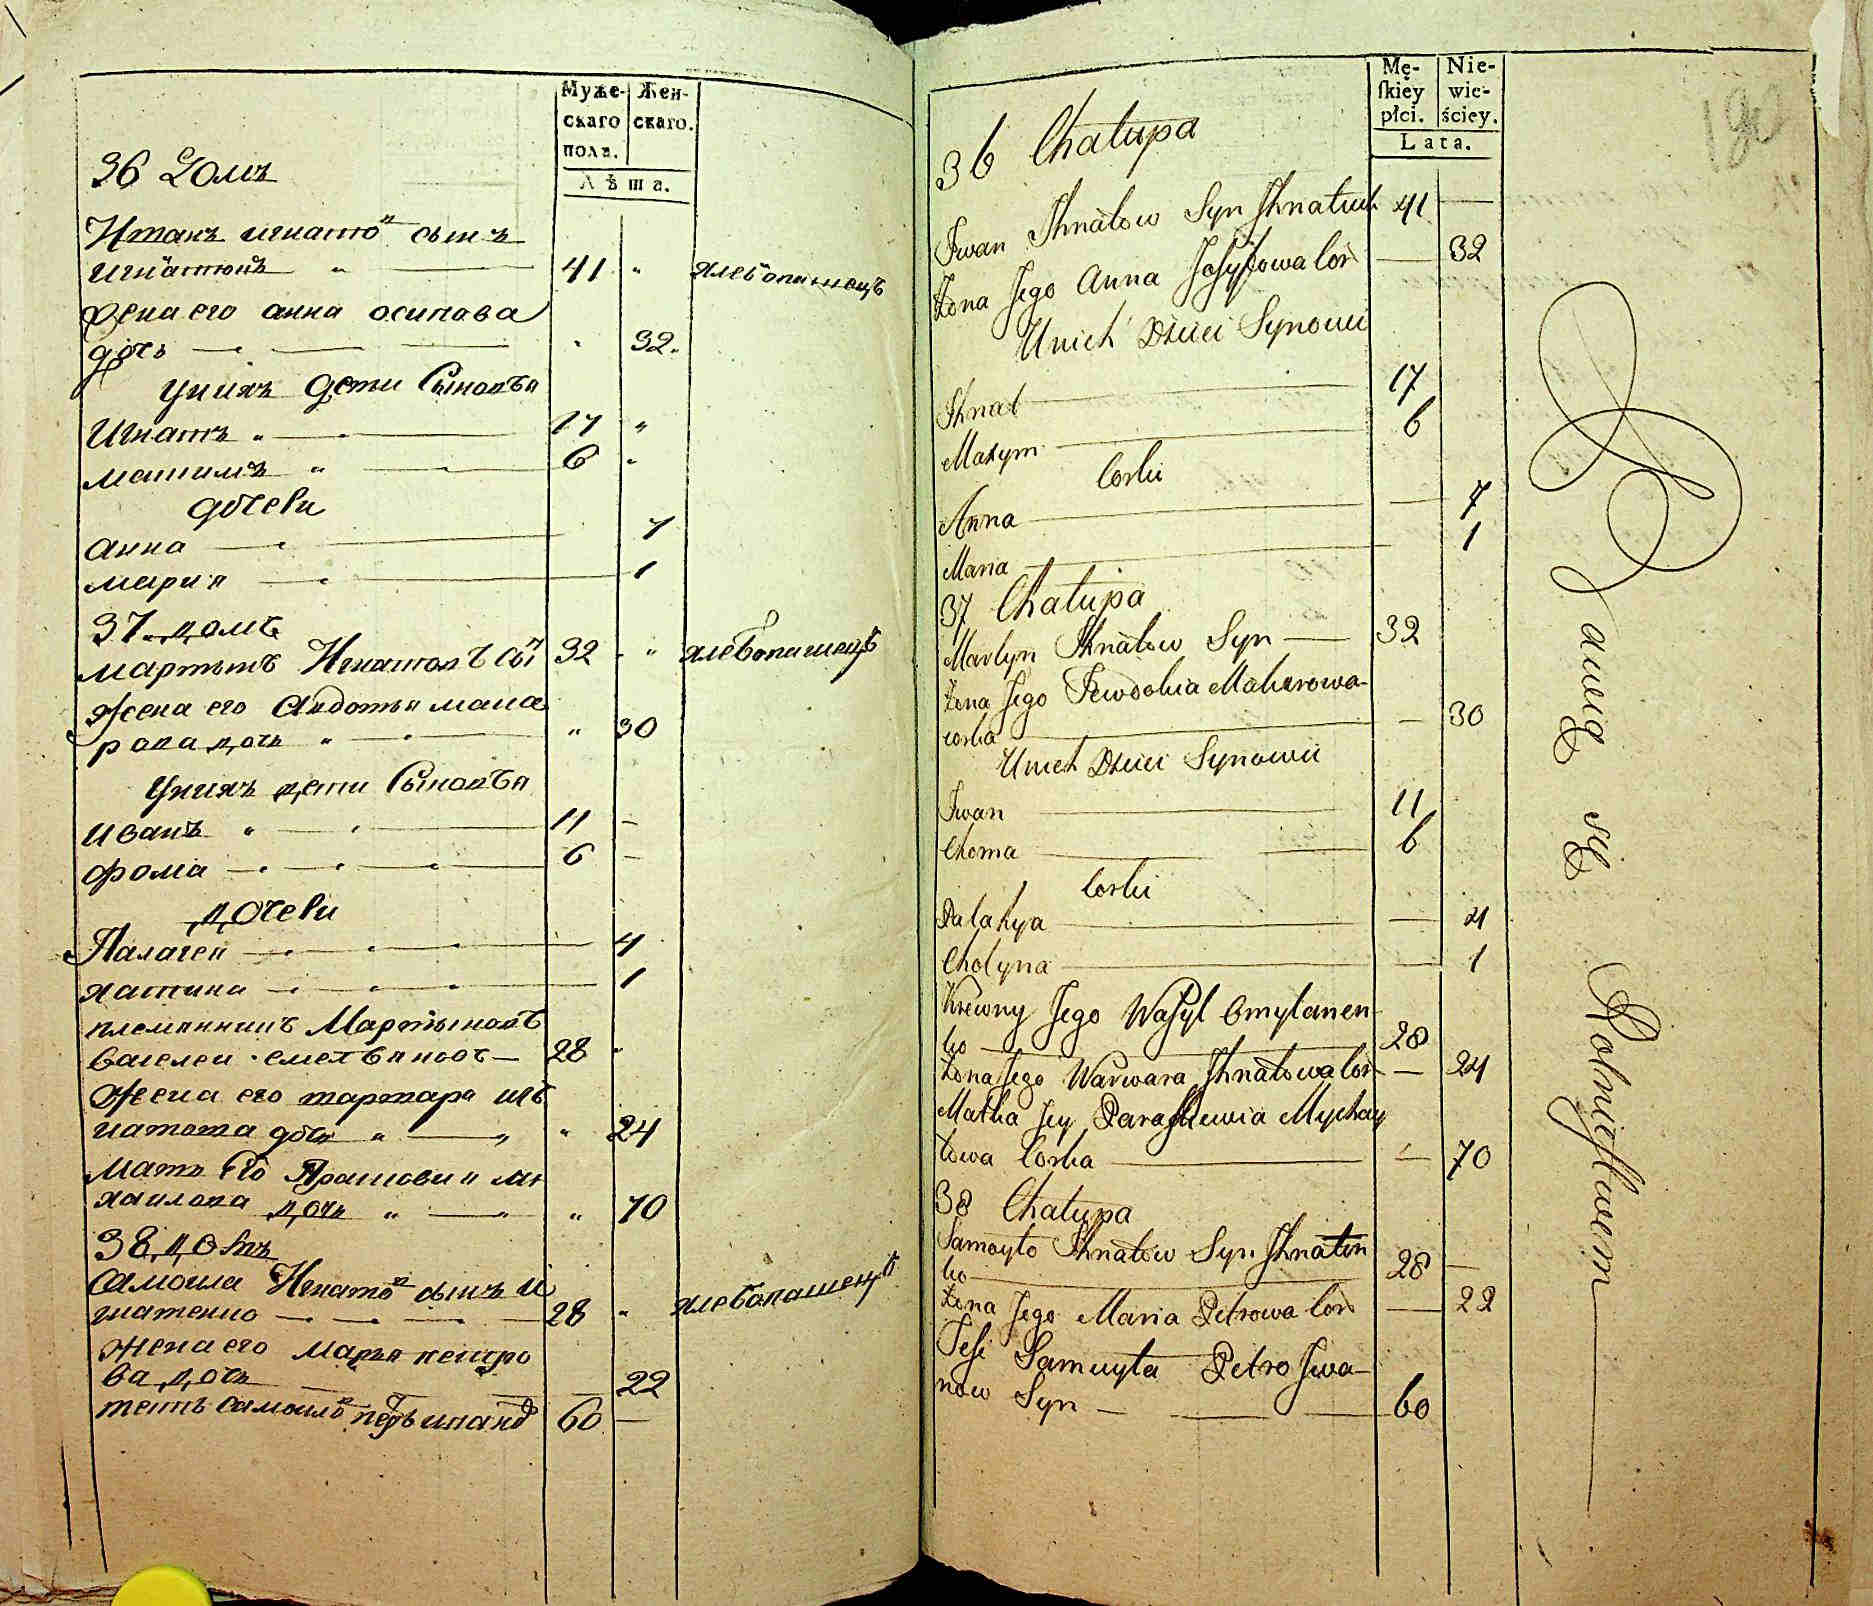 Муже-
скаго
полъ.
Жен-
скаго.
Лѣта.
36 Домъ
Иванъ игнато сынъ
игнатюкъ 41 хлебопашецъ
жена его анна осипова
дочь 32.
Унихъ дети Сыновья
Игнатъ 17
макимъ 6
дочери
анна 7
мария 1
37 домъ
мартынъ Игнатовъ сы 32 хлебопашецъ
жена его Авдотья мака
рова дочь 30
Унихъ дети Сыновья
иванъ 11
фома 6
дочери
Палагея 4
хатина 1
племянникъ Мартыновъ
василеи 28
Жена его
натова дочь 24
Мать Его Прасковия Ми
хаилова дочь 70
38 домъ
Самоила Игнато сынъ И
гнатенко 28 хлебопашецъ
жена его Марья петро
ва дочь 22
тесть Самоило петръ ивано 60
Mę-
skiey
płci.
Nie-
wie-
ściey.
Lata.
180
36 Chałupa
Iwan Ihnatow Syn Ihnatiuk 41
Zona Jego Anna Josyfowa Cor 32
Unich Dzieci Synowie
Ihnat 17
Maxym 6
Corki
Anna 7
Maria 1
37 Chałupa
Martyn Ihnatow Syn 32
Zona Jego Jewdokia Makarowa
corka 30
Unich Dzieci Synowie
Iwan 11
Choma 6
Corki
Palahya 4
Chotyna 1
Krewny Jego Wasyl Omylanen
ko 28
Zona Jego Warwara Ihnatowa Cor 24
Matka Jey Paraskiewia Mychay
łowa Corka 70
38 Chałupa
Samoyło Ihnatow Syn Ihnaten
ko 28
Zona Jego Maria Petrowa Cor 22
Teść Samuyła Petro Iwa
now Syn 60
Bawią się Rolnictwem